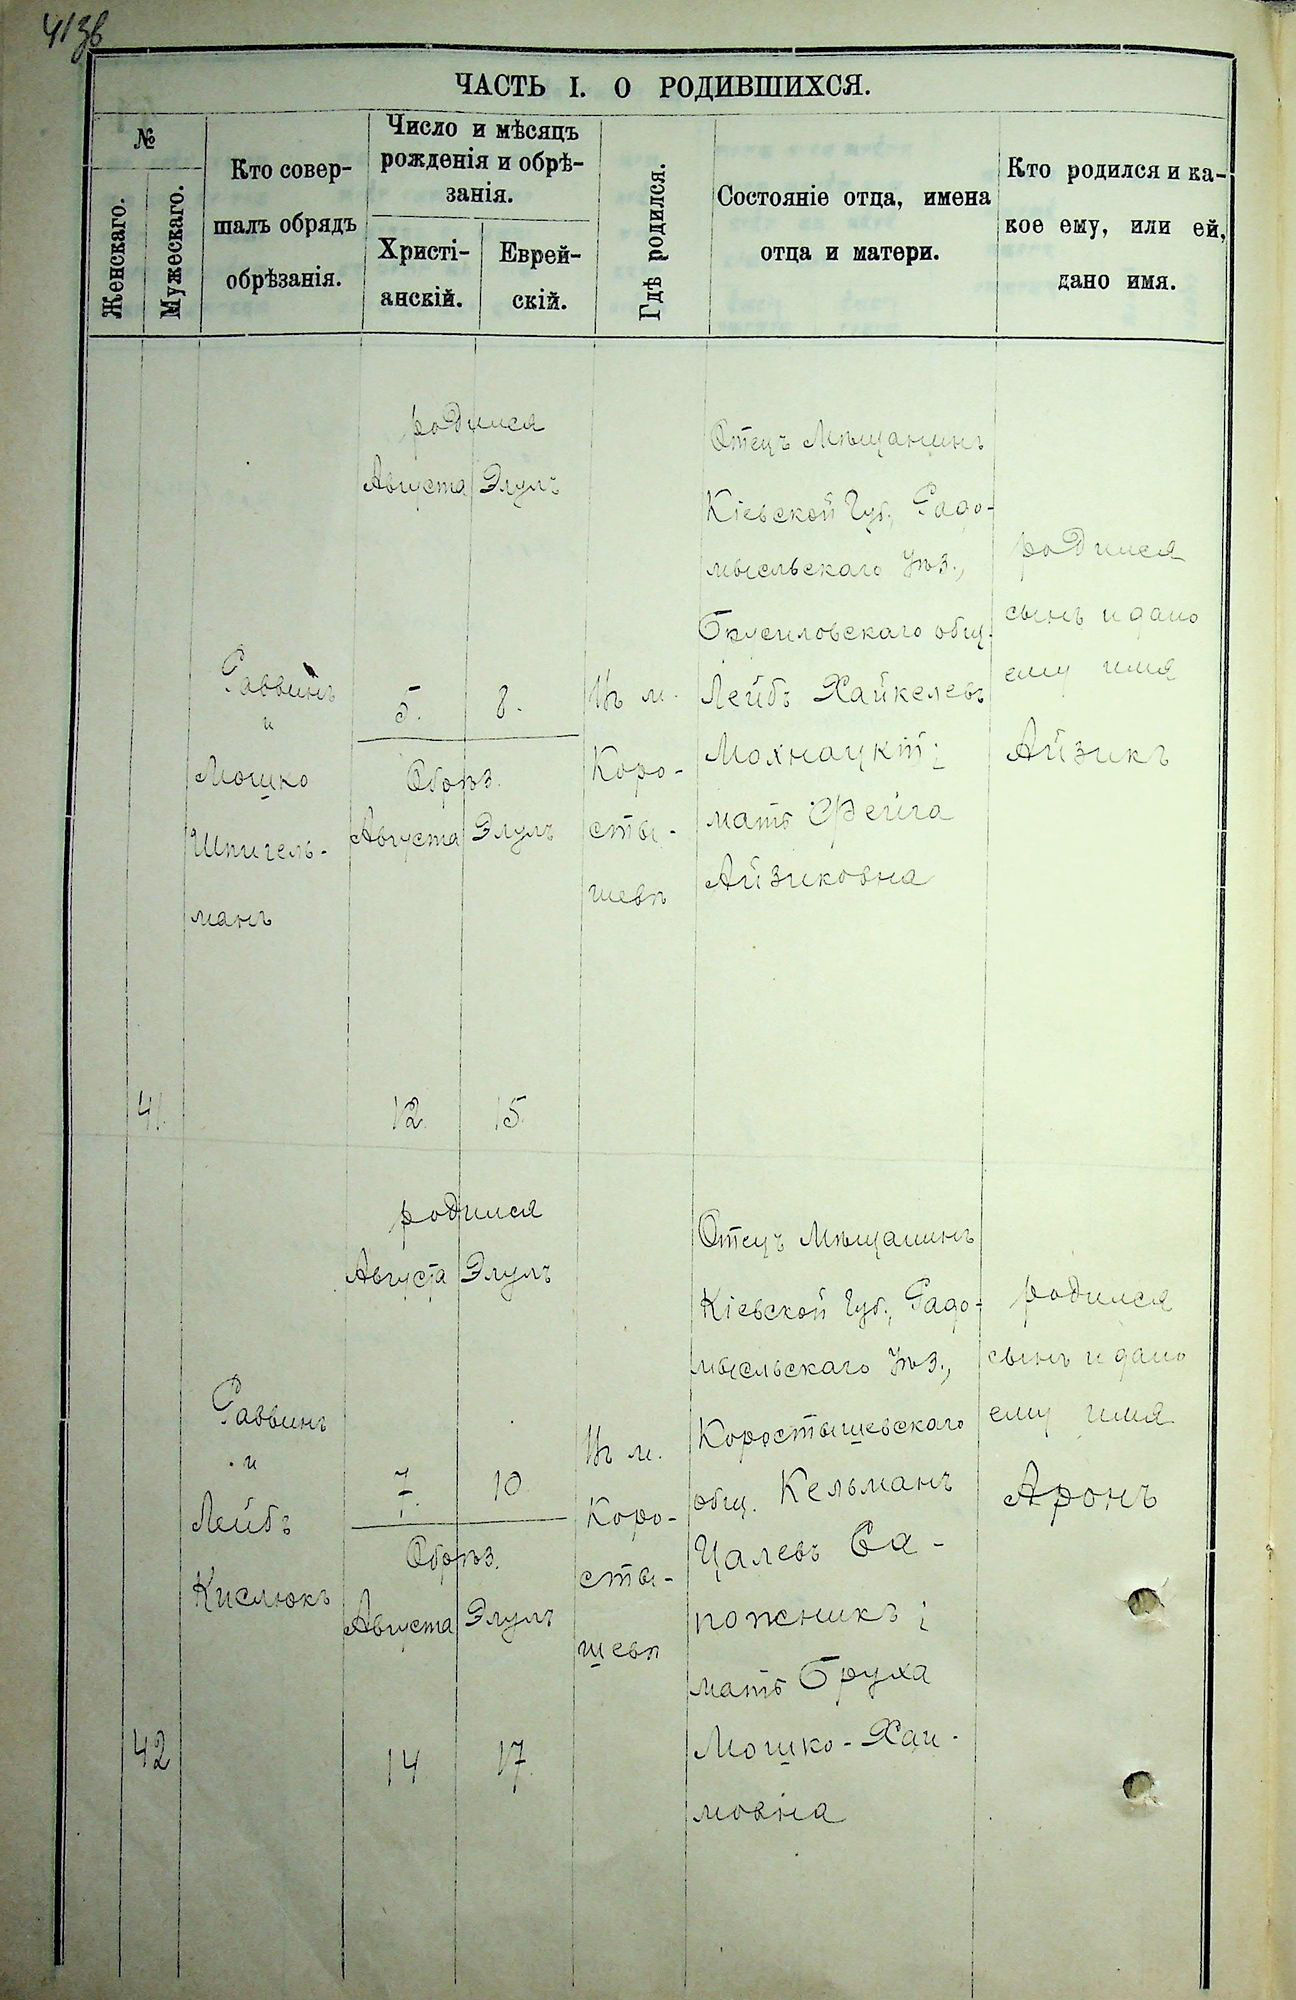 41зв
ЧАСТЬ I. О РОДИВШИХСЯ.
№
Женскаго.
Мужескаго.
Кто совер-
шалъ обрядъ
обрѣзанія.
Число и мѣсяцъ
рожденія и обрѣ-
занія.
Христі-
анскій.
Еврей-
скій.
Гдѣ родился.
Состояніе отца, имена
отца и матери.
Кто родился и ка-
кое ему, или ей,
дано имя.
41.
Раввинъ
и
Мошко
Шпигель-
манъ
родился
Августа Элулъ
5. 8.
Обрѣз.
Августа Элулъ
12. 15.
Въ м.
Коро-
сты-
шевѣ
Отецъ Мѣщанинъ
Кіевской Губ., Радо-
мысльскаго Уѣз.,
Брусиловскаго общ.
Лейбъ Хайкелевъ
Мохнацкій;
мать Фейга
Айзиковна
родился
сынъ и дано
ему имя
Айзикъ
42
Раввинъ
и
Лейбъ
Кислюкъ
родился
Августа Элулъ
7. 10.
Обрѣз.
Августа Элулъ
14 17.
Въ м.
Коро-
сты-
шевѣ
Отецъ Мѣщанинъ
Кіевской Губ., Радо-
мысльскаго Уѣз.,
Коростышевскаго
общ. Кельманъ
Цалевъ Са-
пожникъ;
мать Бруха
Мошко-Хаи-
мовна
родился
сынъ и дано
ему имя
Аронъ